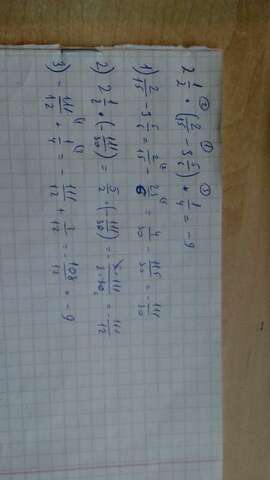 ② ① ③
2 1/2 · (2/15 - 3 5/6) + 1/4 = -9
1) 2/15 - 3 5/6 = 2/15 - 23/6 = 4/30 - 115/30 = -111/30
2) 2 1/2 · (-111/30) = 5/2 · (-111/30) = - 5·111/2·30 = -111/12
3) -111/12 + 1/4 = -111/12 + 3/12 = -108/12 = -9